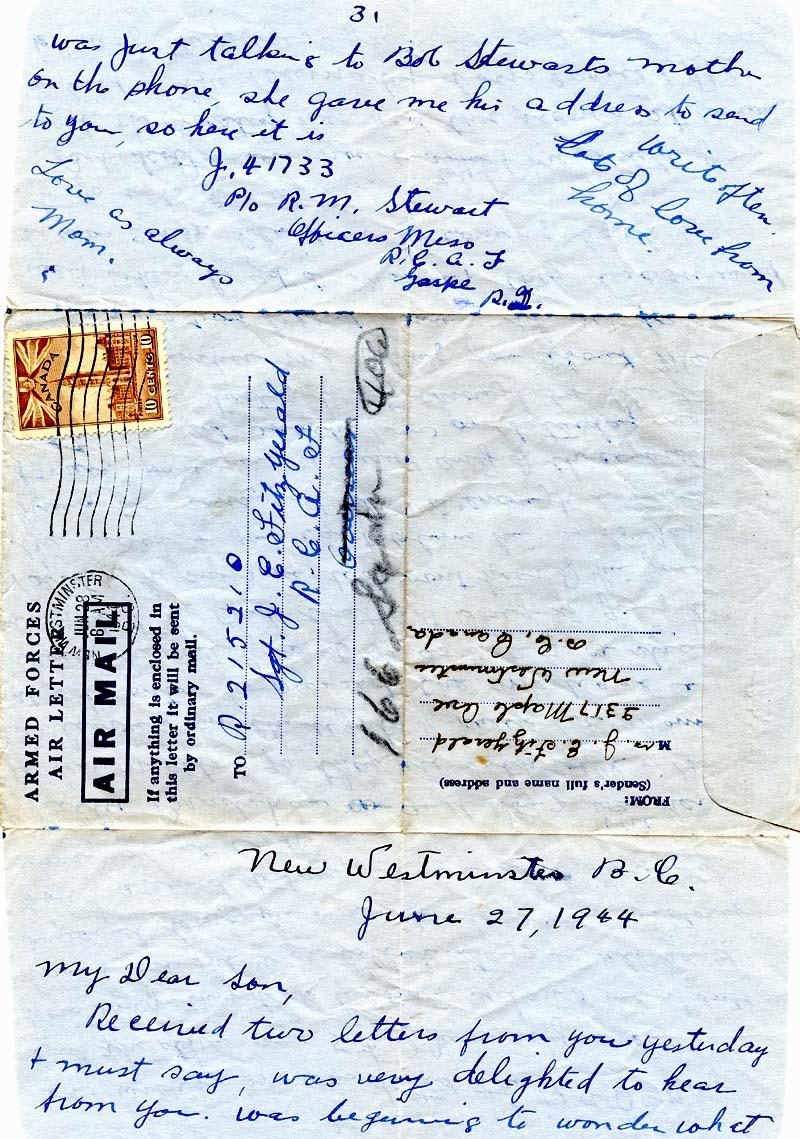 31
was just talking to Bob Stewarts mother
on the phone, she gave me his address to send
to you, so here it is
J. 41733
P/o R. M. Stewart
Officers Mess
R. C. A. F
Gaspe
P.Q.
Love as always
Mom.
Write often.
Lots of love from
home.
CANADA
10 CENTS 10
WESTMINSTER
JUN 28
ARMED FORCES
AIR LETTER
AIR MAIL
If anything is enclosed in
this letter it will be sent
by ordinary mail.
TO R. 215210
Sgt. J. E. Fitzgerald
R. C. A. F
166 Sqdn
FROM:
(Sender's full name and address)
Mrs J. E. Fitzgerald
2317 Maple Ave
New Westminster
B.C. Canada.
New Westminster B.C.
June 27, 1944
My Dear Son,
Received two letters from you yesterday
+ must say, was very delighted to hear
from you. was beginning to wonder what